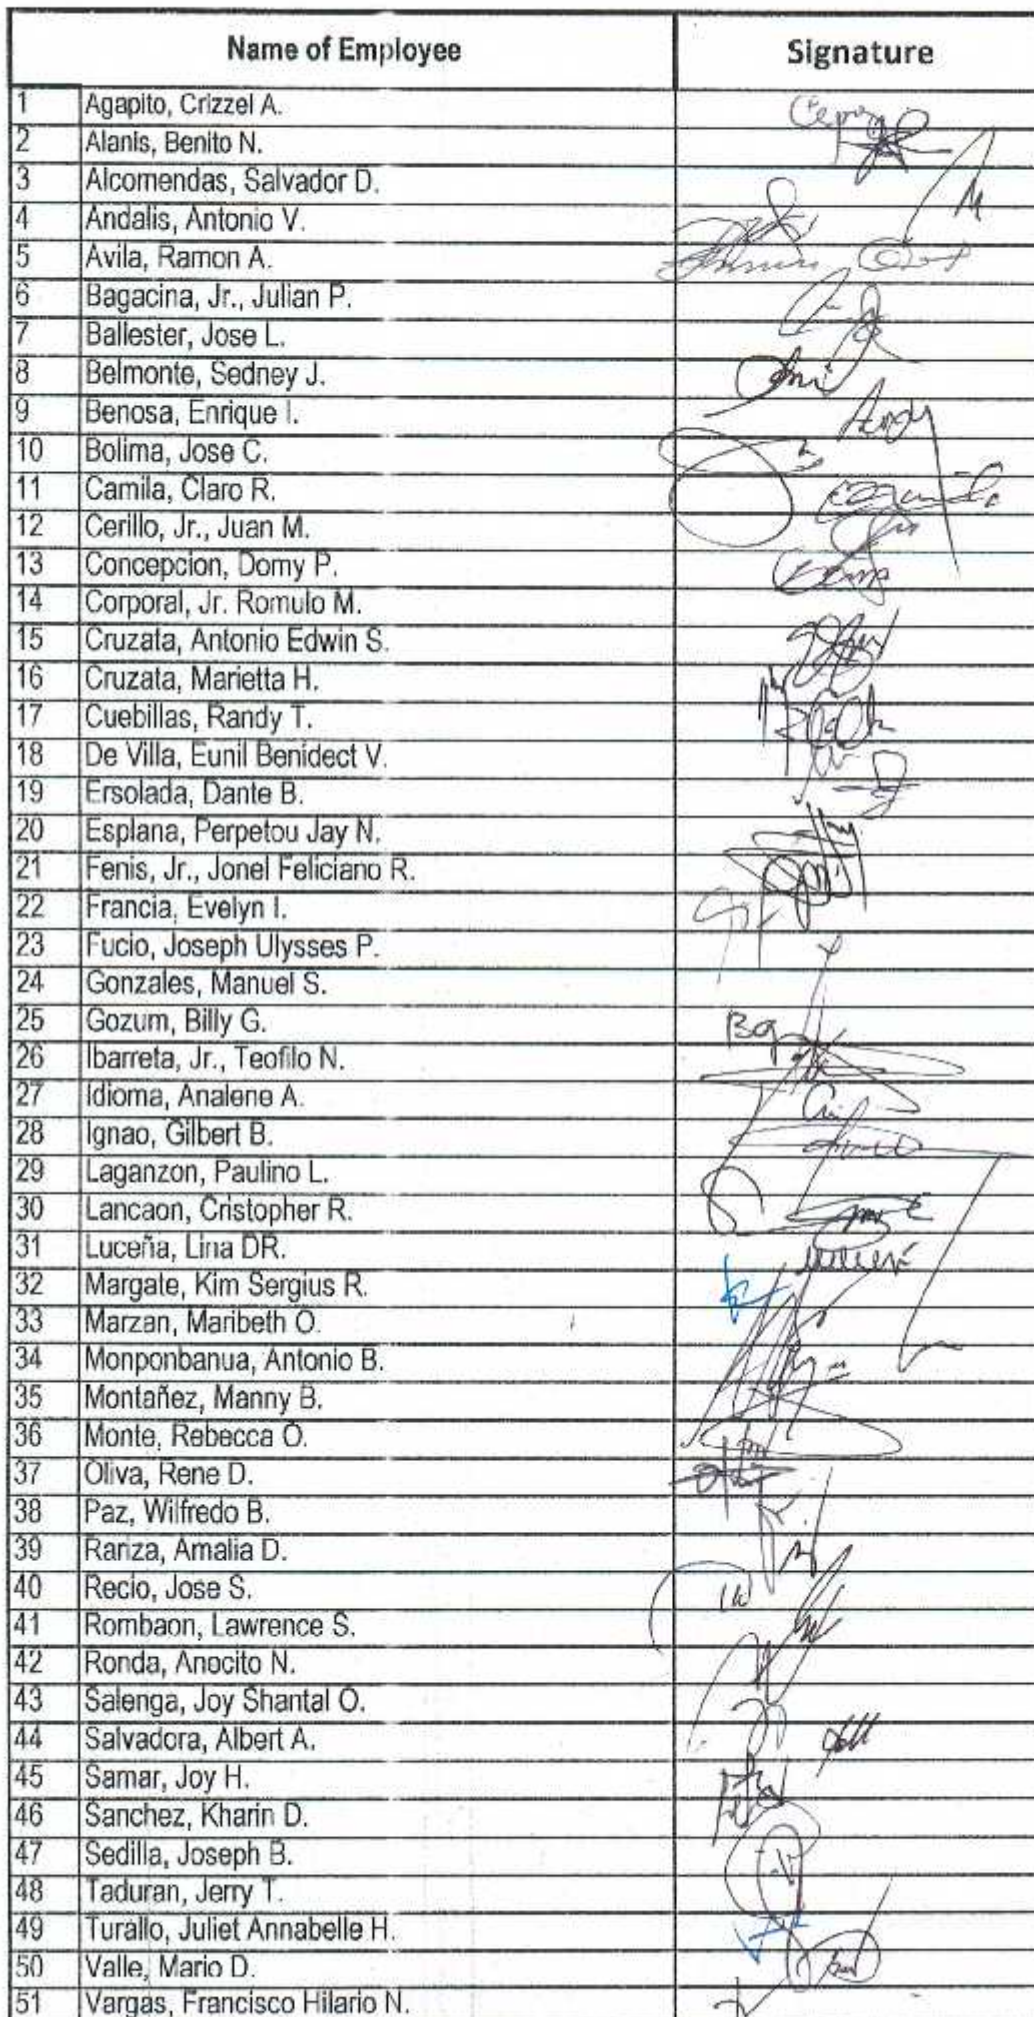 Name of Employee Signature
1 Agapito, Crizzel A.
2 Alanis, Benito N.
3 Alcomendas, Salvador D.
4 Andalis, Antonio V.
5 Avila, Ramon A.
6 Bagacina, Jr., Julian P.
7 Ballester, Jose L.
8 Belmonte, Sedney J.
9 Benosa, Enrique I.
10 Bolima, Jose C.
11 Camila, Claro R.
12 Cerillo, Jr., Juan M.
13 Concepcion, Domy P.
14 Corporal, Jr. Romulo M.
15 Cruzata, Antonio Edwin S.
16 Cruzata, Marietta H.
17 Cuebillas, Randy T.
18 De Villa, Eunil Benidect V.
19 Ersolada, Dante B.
20 Esplana, Perpetou Jay N.
21 Fenis, Jr., Jonel Feliciano R.
22 Francia, Evelyn I.
23 Fucio, Joseph Ulysses P.
24 Gonzales, Manuel S.
25 Gozum, Billy G.
26 Ibarreta, Jr., Teofilo N.
27 Idioma, Analene A.
28 Ignao, Gilbert B.
29 Laganzon, Paulino L.
30 Lancaon, Cristopher R.
31 Luceña, Lina DR.
32 Margate, Kim Sergius R.
33 Marzan, Maribeth O.
34 Monponbanua, Antonio B.
35 Montañez, Manny B.
36 Monte, Rebecca O.
37 Oliva, Rene D.
38 Paz, Wilfredo B.
39 Rariza, Amalia D.
40 Recio, Jose S.
41 Rombaon, Lawrence S.
42 Ronda, Anocito N.
43 Salenga, Joy Shantal O.
44 Salvadora, Albert A.
45 Samar, Joy H.
46 Sanchez, Kharin D.
47 Sedilla, Joseph B.
48 Taduran, Jerry T.
49 Turallo, Juliet Annabelle H.
50 Valle, Mario D.
51 Vargas, Francisco Hilario N.